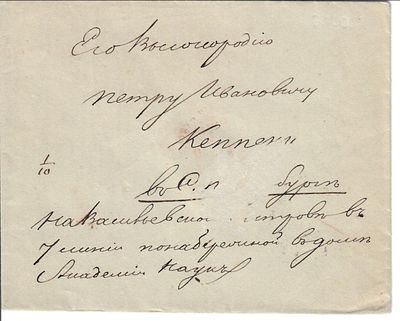 Его Высокородію
Петру Ивановичу
Кеппену
1/10
въ С. п бургъ
На Васильевскомъ островѣ въ
7 линіи по набережной въ домѣ
Академіи Наукъ